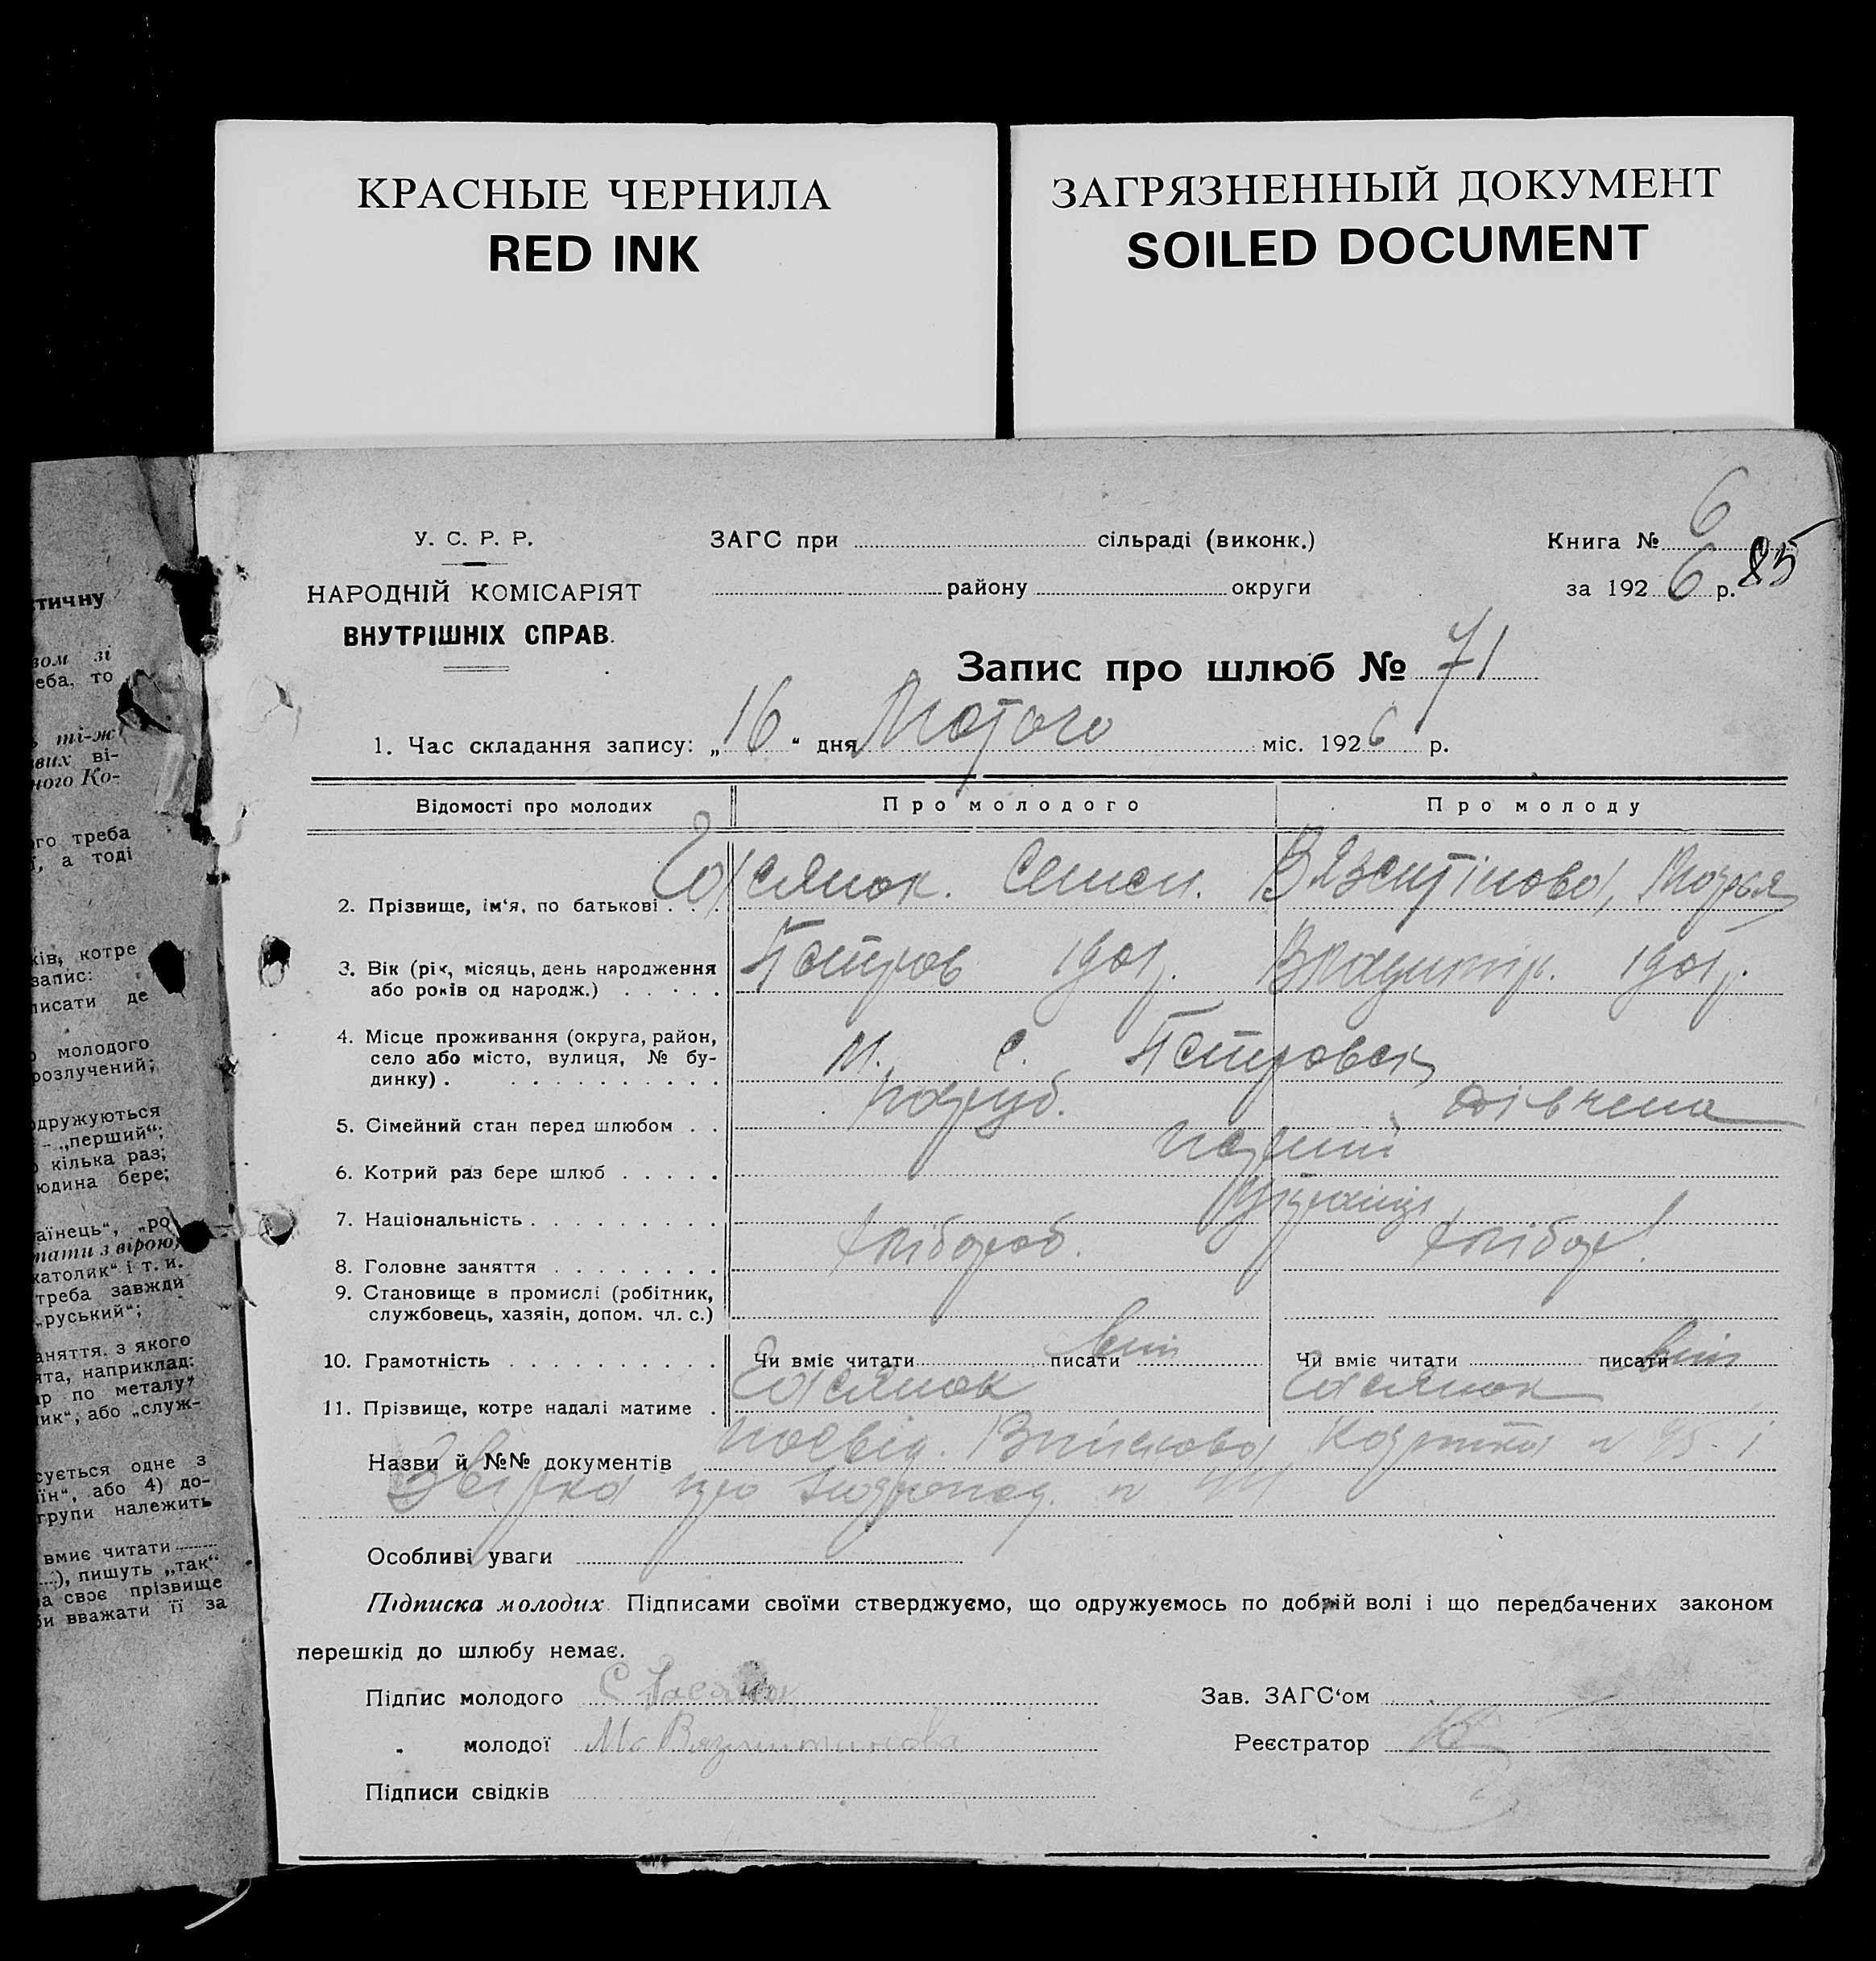 КРАСНЫЕ ЧЕРНИЛА
RED INK
ЗАГРЯЗНЕННЫЙ ДОКУМЕНТ
SOILED DOCUMENT
тичну
вом зі
еба, то
ті-ж
вих ві-
ного Ко-
го треба
ї, а тоді
ків, котре
запис:
писати де
молодого
розлучений;
одружуються
– „перший“;
кілька раз;
юдина бере;
аїнець“, „ро
тати з вірою,
католик“ і т. и.
треба завжди
„руський“;
аняття, з якого
ята, наприклад:
ар по металу“
ик“, або „служ-
сується одне з
їн“, або 4) до-
групи належить
вмиє читати
), пишуть „так“
а своє прізвище
би вважати її за
У. С. Р. Р.
НАРОДНІЙ КОМІСАРІЯТ
ВНУТРІШНІХ СПРАВ.
ЗАГС при сільраді (виконк.)
району округи
Книга № 6
за 1926 р. 85
Запис про шлюб № 71
1. Час складання запису: „16“ дня Лютого міс. 1926 р.
Відомості про молодих Про молодого Про молоду
2. Прізвище, ім‘я, по батькові . . . Семен. Марья
3. Вік (рік, місяць, день народження Петров 1901р. Владимир. 1901р.
або років од народж.) . . . . .
4. Місце проживання (округа, район,
село або місто, вулиця, № бу-
динку) . . . . . . . . . . . м. с. Петровск
5. Сімейний стан перед шлюбом . . паруб. дівчена
6. Котрий раз бере шлюб . . . . . перший
7. Національність . . . . . . . . . українці
8. Головне заняття . . . . . . . . Хлібороб. Хлібор.
9. Становище в промислі (робітник,
службовець, хазяін, допом. чл. с.)
10. Грамотність . . . . . . . . . . Чи вміє читати писати вміє Чи вміє читати писати вміє
11. Прізвище, котре надалі матиме .
Назви й №№ документів посвід. Картка
про
Особливі уваги
Підписка молодих. Підписами своїми стверджуємо, що одружуємось по добрій волі і що передбачених законом
перешкід до шлюбу немає.
Підпис молодого С Зав. ЗАГС‘ом
„ молодої М. Реєстратор
Підписи свідків